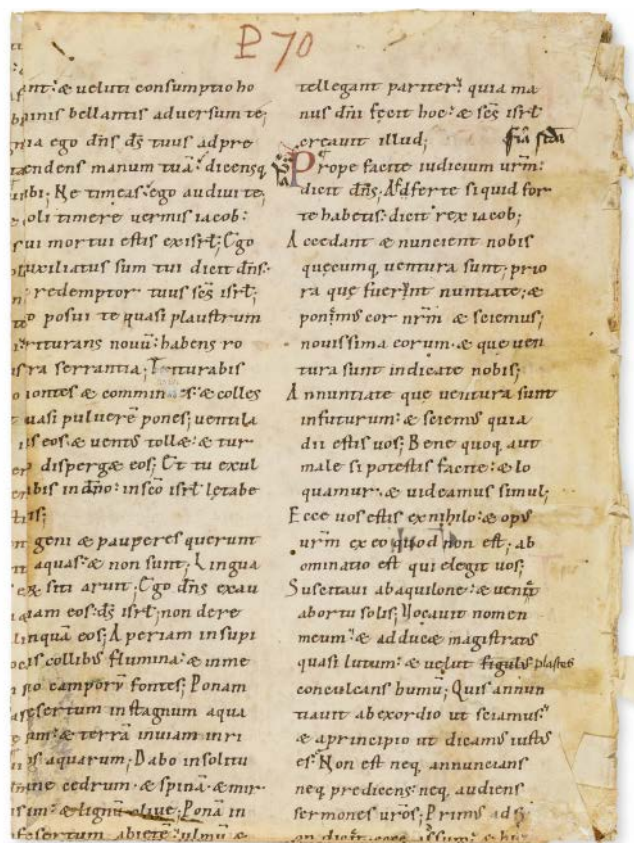 P 70
ant: & ueluti consumptio ho
minis bellantis aduersum te;
Quia ego dn̄s ds̄ tuus adpre
hendens manum tuā: dicensq,
tibi; Ne timeas: ego audiui te;
oli timere uermis iacob:
qui mortui estis ex isrł; Ego
auxiliatus sum tui dicit dn̄s:
redemptor tuus sc̄s isrł;
o posui te quasi plaustrum
triturans nouū: habens ro
stra serrantia; Triturabis
montes & comminues: & colles
quasi puluerē pones; uentila
bis eos: & uentus toll&: & tur
bo disperg& eos; Et tu exul
tabis in dn̄o: in sc̄o isrł l&abe
ris;
geni & pauperes querunt
aquas: & non sunt; Lingua
siti aruit; Ego dn̄s exau
diam eos: ds̄ isrł; non dere
linquā eos; Aperiam in supi
nis collibus flumina: & in me
dio camporū fontes; Ponam
desertum in stagnum aqua
rum: & terrā inuiam in ri
uos aquarum; Dabo in solitu
dine cedrum: & spinā: & mir
& lignū oliue; Ponā in
desertum abi&ē: ulmū &
tellegant pariter: quia ma
nus dn̄i fecit hoc: & sc̄s isrł
creauit illud;
Prope facite iudicium ur̄m:
dicit dn̄s; Adferte si quid for
te habetis: dicit rex iacob;
Accedant & nuncient nobis
quęcumq, uentura sunt; prio
ra quę fuerunt nuntiate: &
ponimus cor nr̄m & sciemus;
nouissima eorum: & que uen
tura sunt indicate nobis;
Annuntiate que uentura sunt
in futurum: & sciemus quia
dii estis uos; Bene quoq, aut
male si potestis facite: & lo
quamur: & uideamus simul;
Ecce uos estis ex nihilo: & opus
ur̄m ex eo quod non est; ab
ominatio est qui elegit uos;
Suscitaui ab aquilone: & uenit
ab ortu solis; Vocauit nomen
meum: & adduc& magistratus
quasi lutum: & uelut figulus plastes
conculcans humū; Quis annun
tiauit ab exordio ut sciamus:
& a principio ut dicamus iustus
es: Non est neq, annuncians
neq, predicens: neq, audiens
sermones uros; Primus ad si
on dic&: ecce assum: &